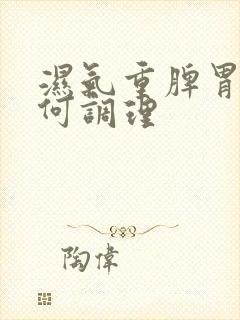 濕氣重脾胃
何調理
陶偉